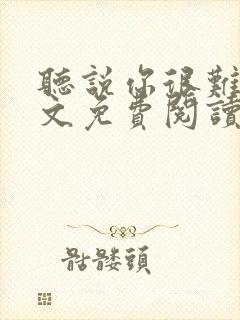 聽說你很難
文免費閱讀
骷髏頭